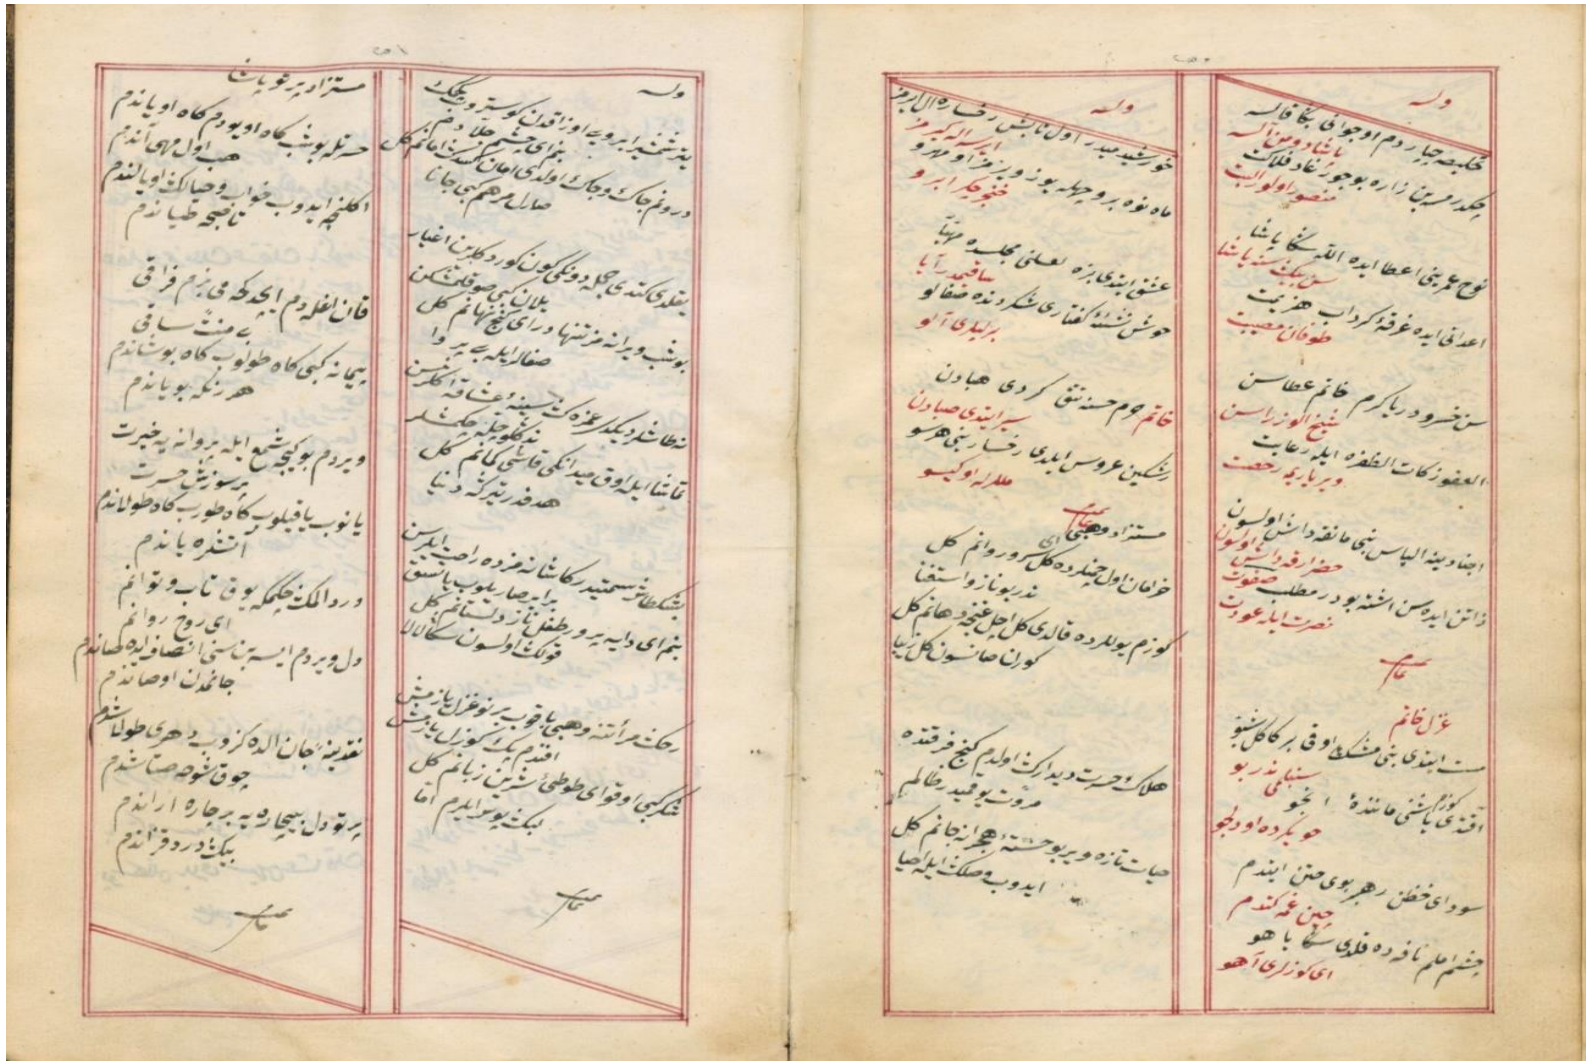 وله
تخلیصه چاره دم او جوانی بکا قاله
پاشا دومن آله
چکدر مه بن زاره بو جور غاد فلاکت
منصور اولور البت
نوح عمرینی اعطا ایده الله سکا پاشا
سن بیک سنه یاشا
اعدانی ایده غرقهٔ کرداب هزیمت
طوفان مصیبت
سن خسرو دریا کرم خاتم عطاسن
شیخ الوزراسن
العفو زکات الظفره ایله رعایت
ویر یاریمه رخصت
اجنادینه الیاس نبی مانقه داش اولسون
خضر ارقه داش اولسون
ذاتن ایده سن اشته بودر مطلب صفوت
نصرت ایله عودت
تمام
غزل خاتم
مست ایتدی بنی مشک اوقی بر کاکل شبو
سنبلمی ندر بو
اقتدی یاشنی کوزم مانندهٔ انجو
جو یکرده او دلجو
سودای خطن رهبر بوی ختن ایتدم
چین غمه کتدم
چشم املم نافه ده قلدی سکا یا هو
ای کوزلری آهو
وله
خورشید میدر اول تابش رخساره ال ایرمز
ایرسه کیرمز
ماه نوه بر و جهله یوز ویرمز او مهرو
خنجر چکر ابرو
عشق ایتدی بزه لعلنی مجلسده مهیا
ساقیمدر آیا
خوش نشئهٔ کفتاری شکردنده صفالو
بر لبلری آلو
خاتم حرم حسنه تتق کردی هبادن
سیر ایتدی صبادن
رشکین عروس ایلدی رخسارینی هرسو
طللرله او کیسو
تمام
مستزاد وهبی
خرامان اول چمنلرده کل ای سرو روانم کل
ندر بو ناز و استغنا
کوزم یوللرده قالدی کل اچل غنچه دهانم کل
کورن صانسون کل زیبا
هلاک حسرت دیدارک اولدم کنج فرقتده
مروت یوقمیدر ظالم
حیات تازه ویر بو خستهٔ هجرانه جانم کل
ایدوب وصلک ایله احیا
وله
یتر شمشیر ابرویی اوزاقدن کوستروب چکمک
بنم ای چشم جلادم
درونم چاک و چاک اولدی امان کسدک امانم کل
صارل مرهم کبی جانا
یقلدی کتدی جمله دونکی کون کوردکلرین اغیار
یلان کبی صوقلمشکن
بو شب ویرانه مز تنها درای کنج نهانم کل
صفالر ایله بی پروا
نه طاشلر دیکدی غمزه ک سینهٔ عشاقه اکلرسن
ندکلو چله چکمشلر
تماشا ایله اوق میدانکی قاشی کمانم کل
هدفدر تیرکه دنیا
بشکطاش سمتیدر کاشانه مزده راحت ایلرسن
برابر صاریلوب یاتسق
بنم ای دایه پرور طفل ناز دلستانم کل
قولک اولسون سکا لالا
رخک مرأتنه وهبی یاقوب بر نو غزل یازمش
افندم پک کوزل یازمش
شکر کبی اوقو ای طوطئ شیرین زبانم کل
لبک بوس ایلرم اما
تمام
مستزاد پرتو پاشا
حسرتله بو شب کاه اویودم کاه اویاندم
هب اول مهی آندم
اکلنجه ایدوب خواب و خیالک اویالندم
تا صبحه طیاندم
قان اغله دم ایچدکجه می بزم فراقی
بی منت ساقی
پیمانه کبی کاه طولوب کاه بوشاندم
هر رنکه بویاندم
ویردم بو کیجه شمع ایله پروانه یه خیرت
بر سوزش حسرت
یانوب یاقیلوب کاه طورب کاه طولاندم
آتشلره یاندم
درد المک چکمکه یوق تاب و توانم
ای روح روانم
دل ویردم ایسه بن سنی انصافلیده صاندم
جانمدن اوصاندم
نقدینهٔ جان الده کزوب دهری طولاشدم
چوق شوخه صتاشدم
پرتو دل بیچاره یه بر چاره اراندم
بیک درد قزاندم
تمام